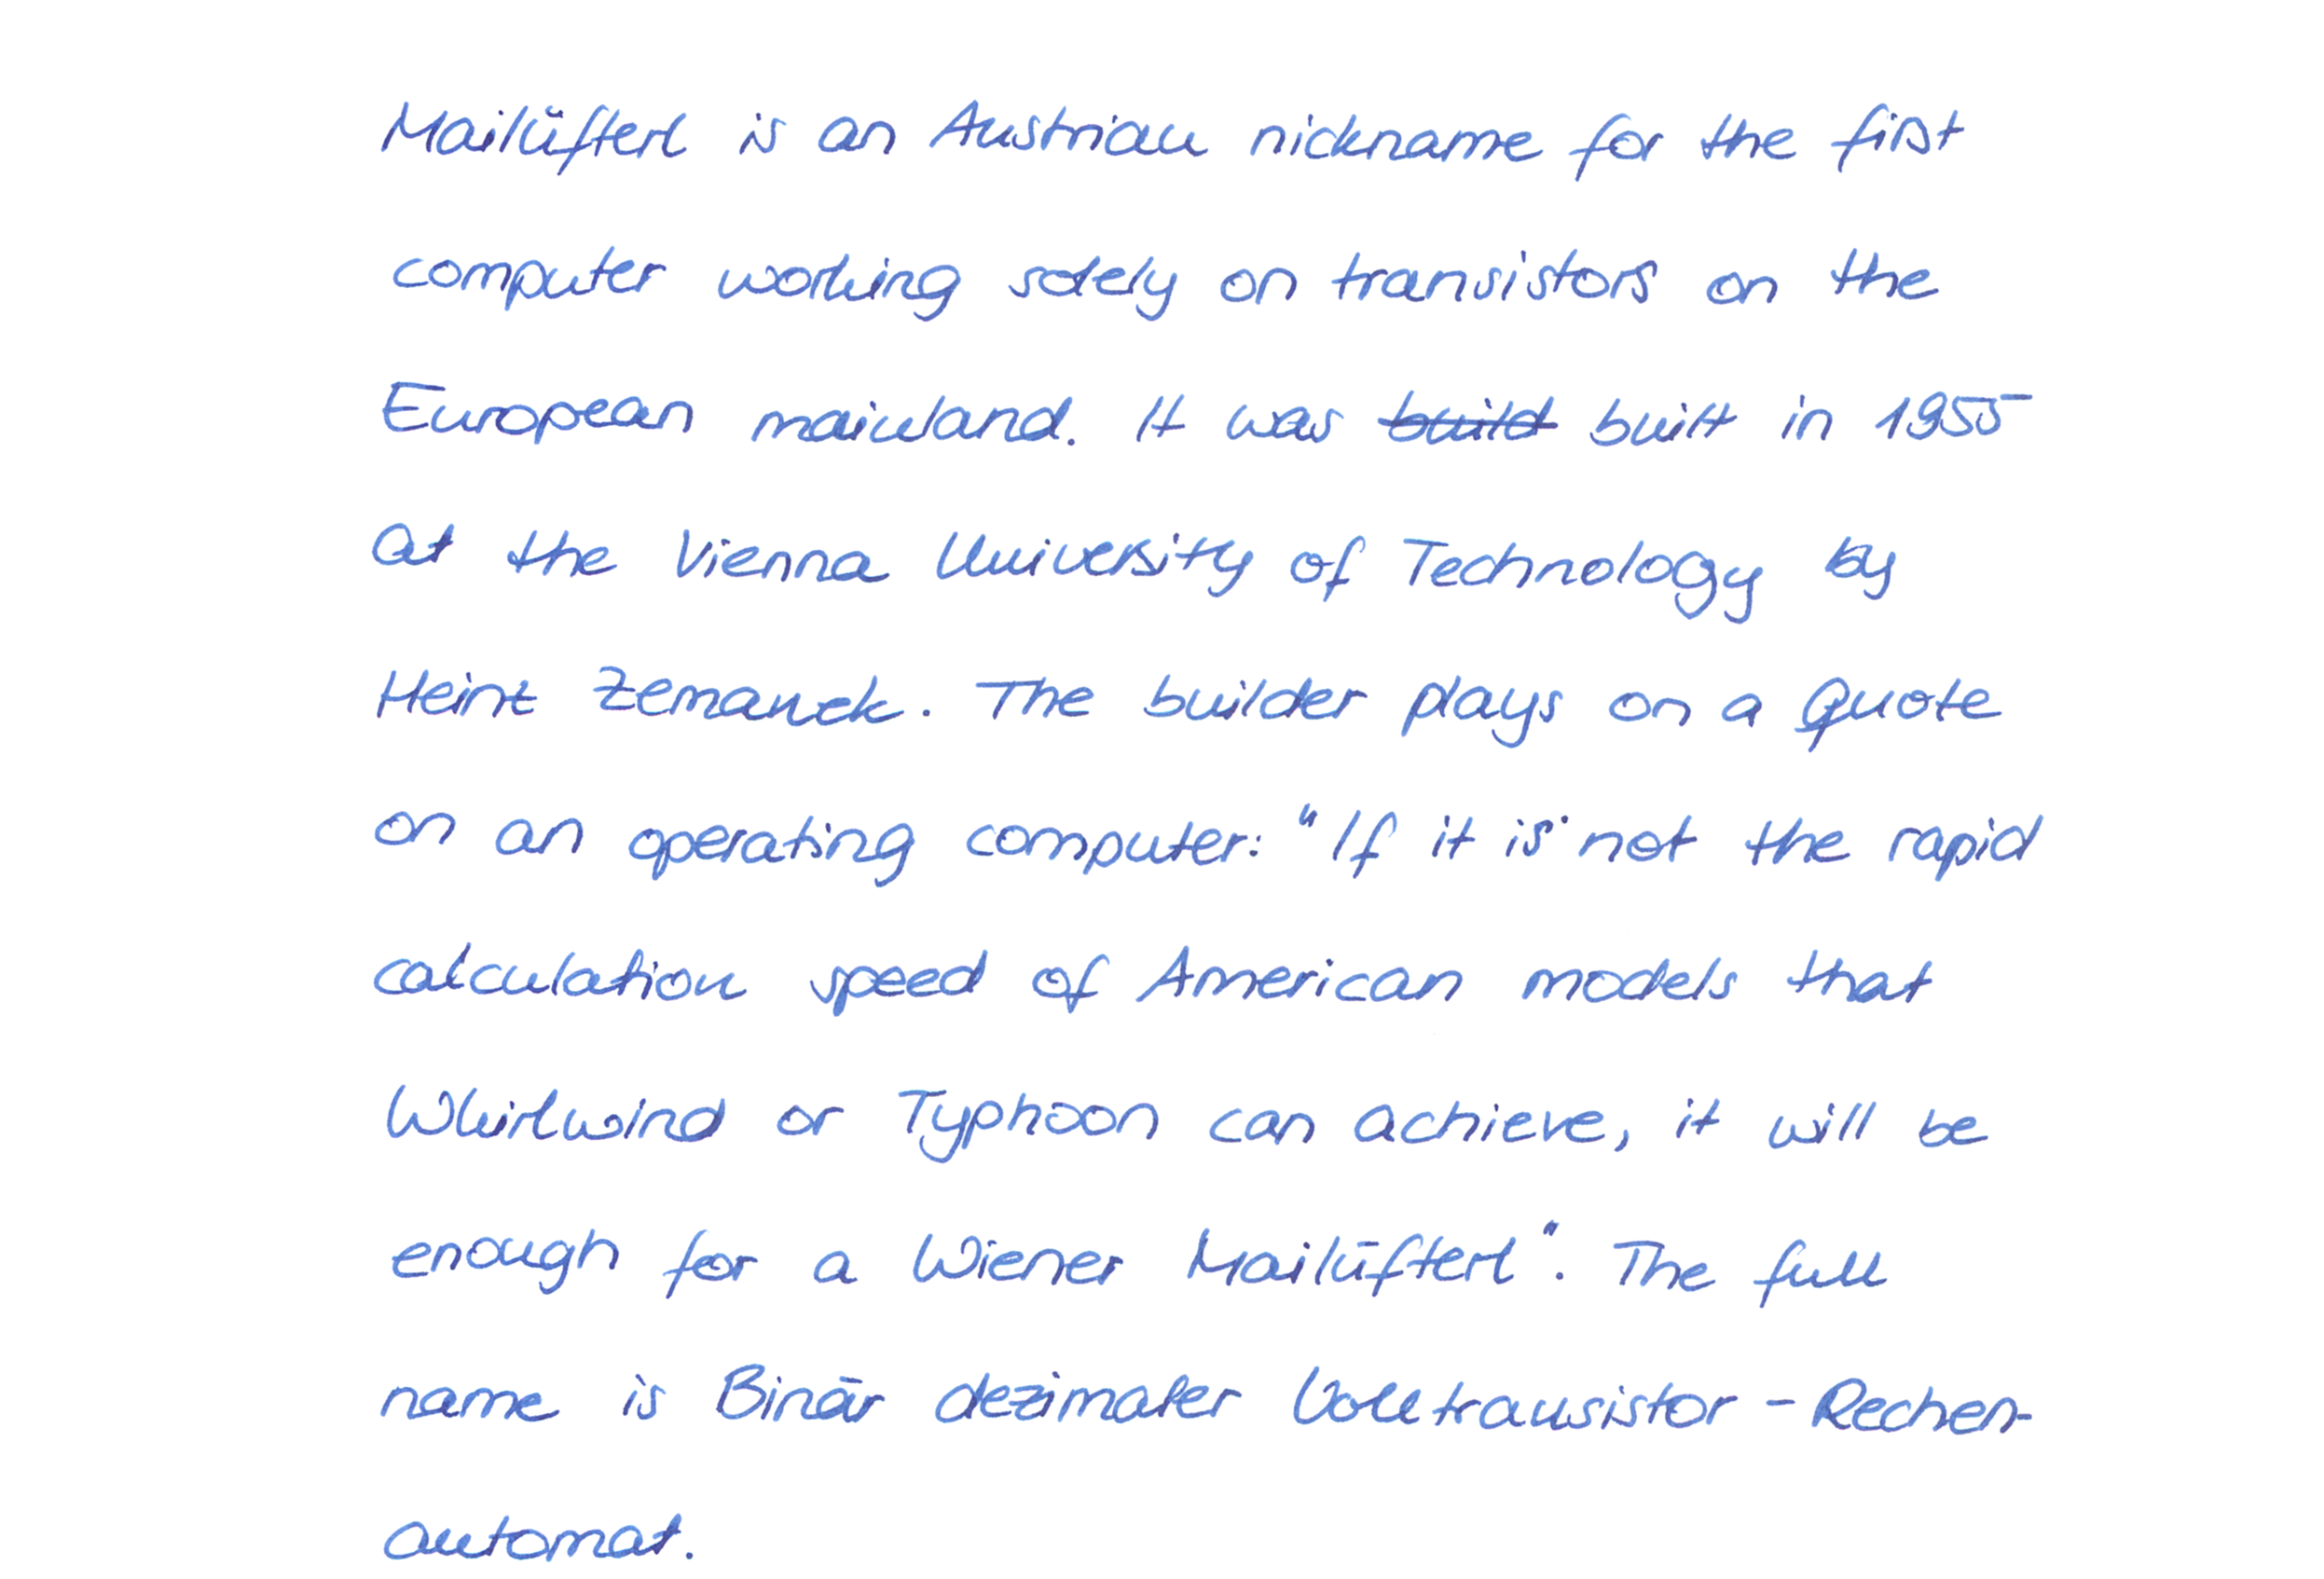 Mailüfterl is an Austrian nickname for the first
computer working solely on transistors on the
European mainland. It was build built in 1955
at the Vienna University of Technology by
Heinz Zemanek. The builder plays on a Quote
on an operating computer: "If it is not the rapid
calculation speed of American models that
Whirlwind or Typhoon can achieve, it will be
enough for a Wiener Mailüfterl". The full
name is Binär dezimaler Volltransistor - Rechen-
automat.